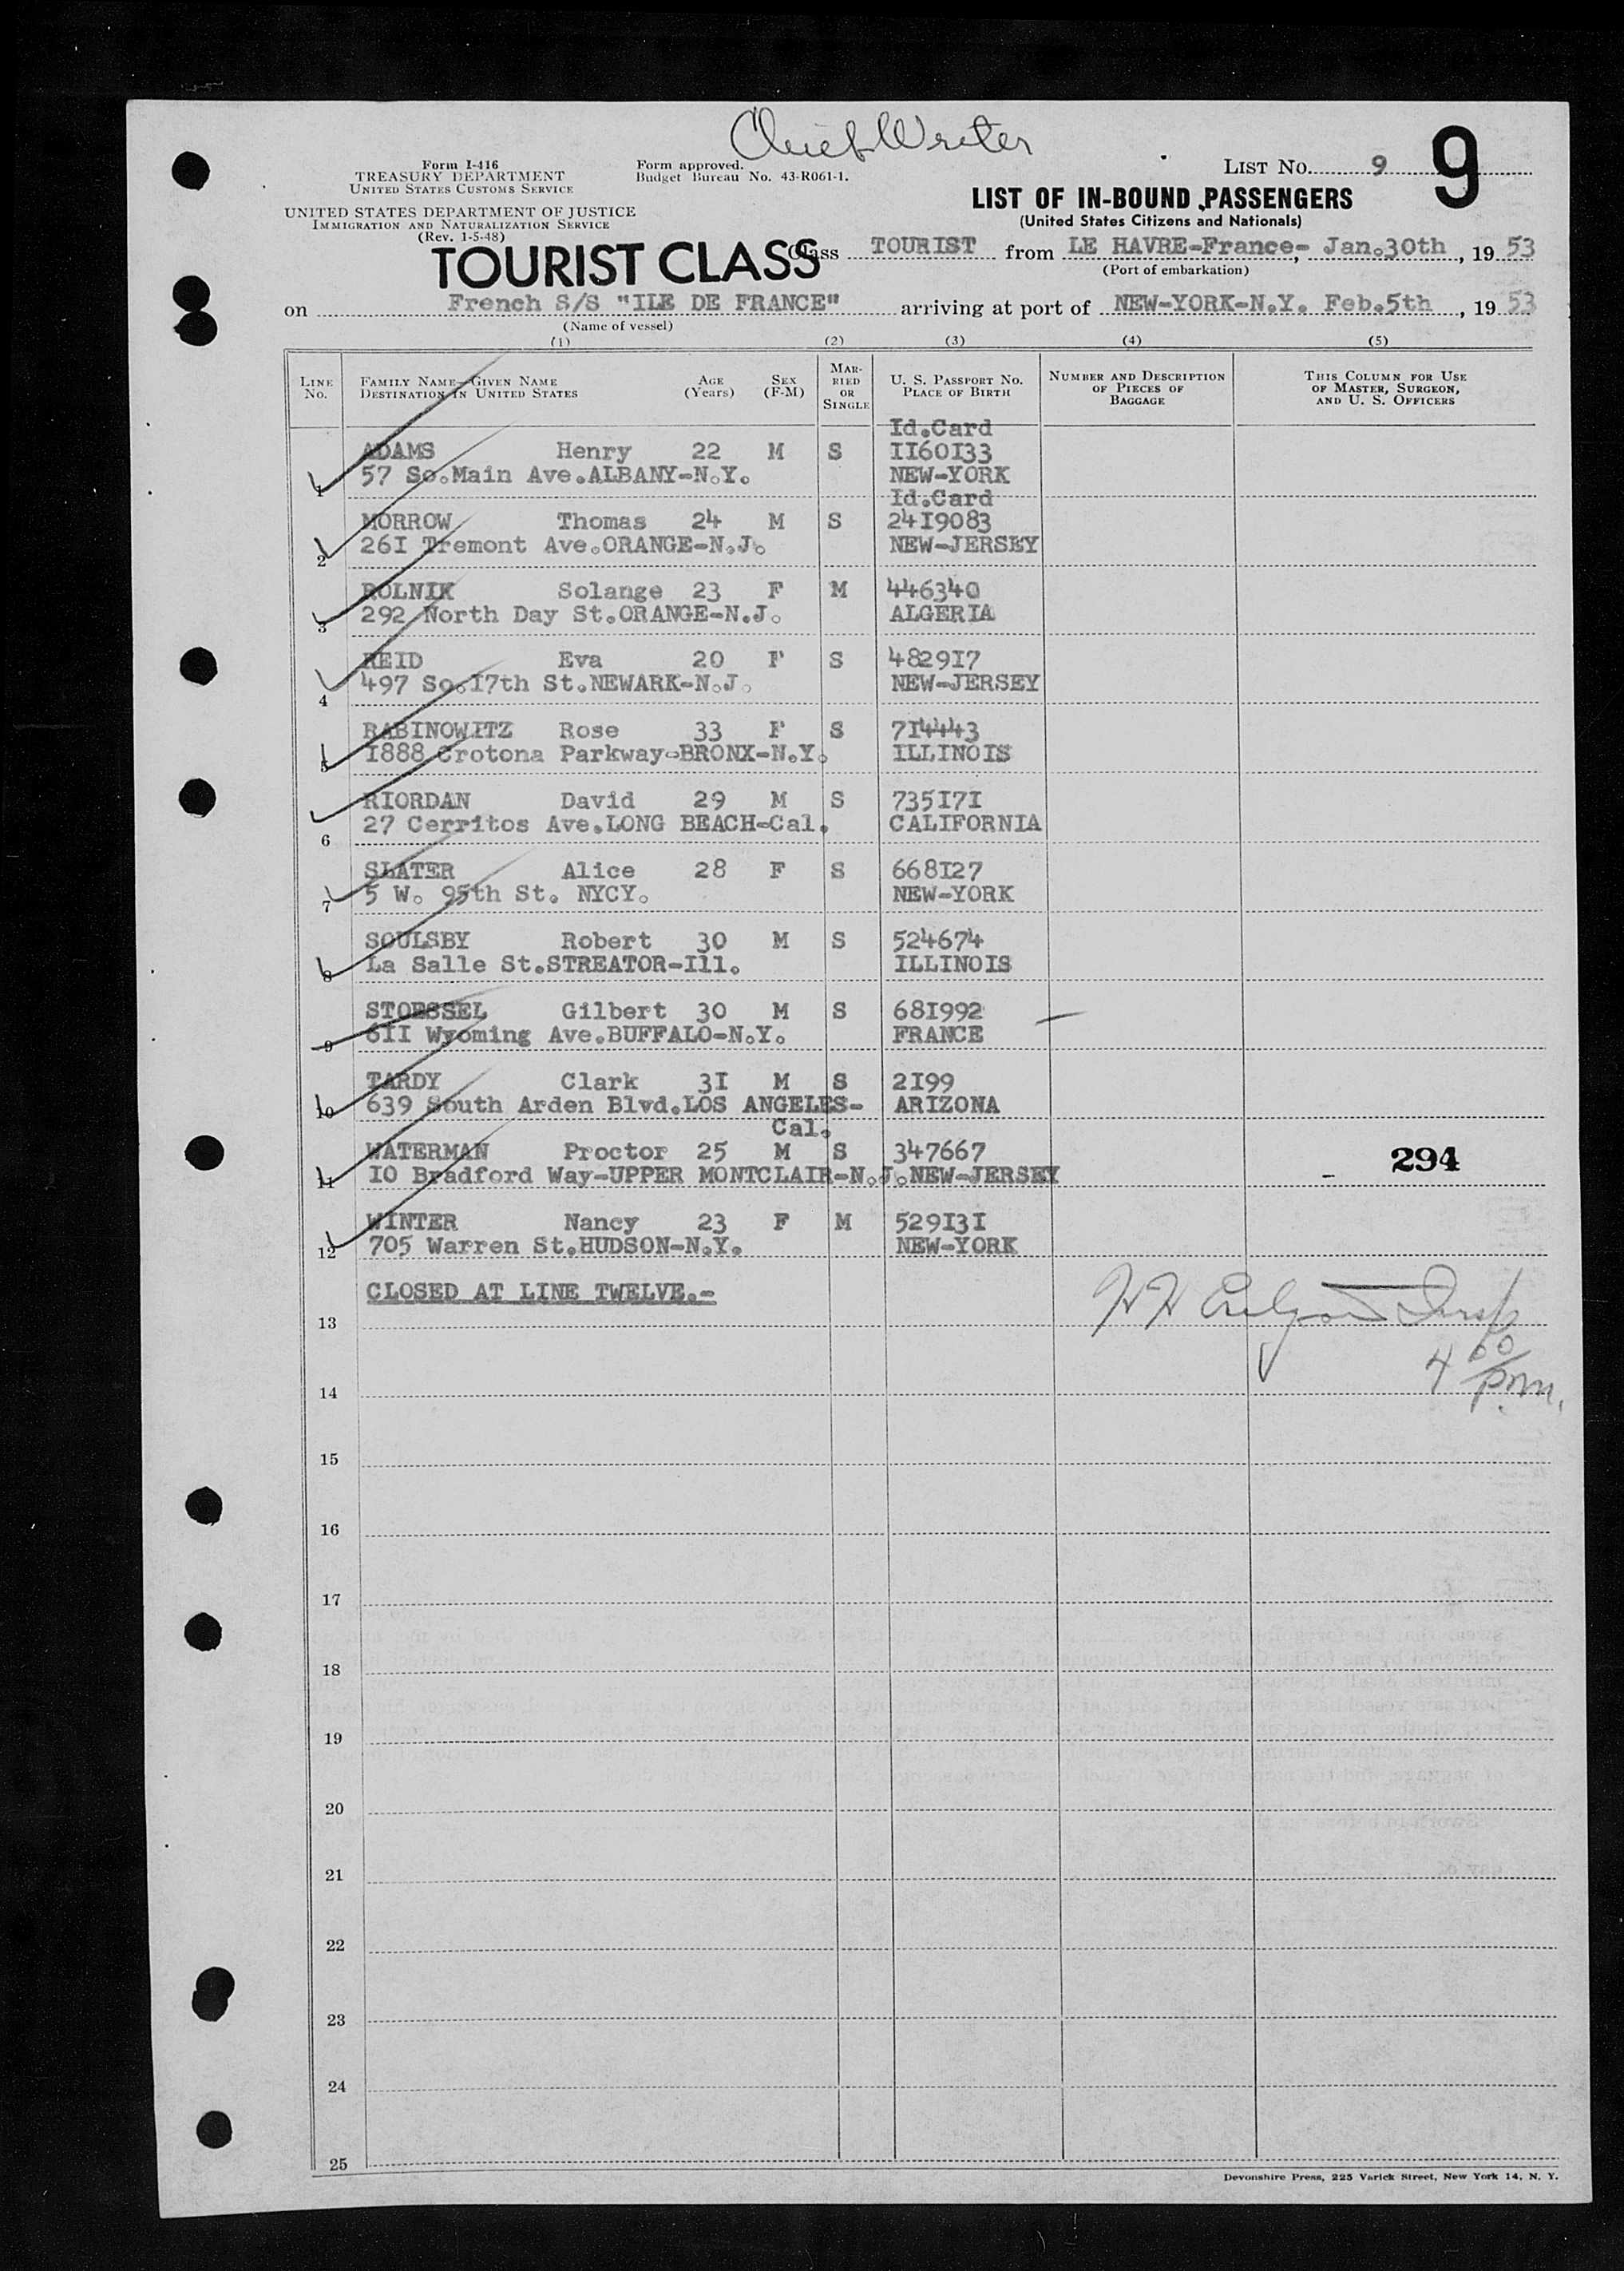 Chief Writer
Form I-416
TREASURY DEPARTMENT
UNITED STATES CUSTOMS SERVICE
Form approved.
Budget Bureau No. 43-R061-1.
LIST No. 9
9
UNITED STATES DEPARTMENT OF JUSTICE
IMMIGRATION AND NATURALIZATION SERVICE
(Rev. 1-5-48)
LIST OF IN-BOUND PASSENGERS
(United States Citizens and Nationals)
TOURIST CLASS
Class TOURIST from LE HAVRE-France-, Jan.30th, 19 53
(Port of embarkation)
on French S/S "ILE DE FRANCE" arriving at port of NEW-YORK-N.Y. Feb.5th, 19 53
(Name of vessel)
(1) (2) (3) (4) (5)
LINE No.
FAMILY NAME—GIVEN NAME
DESTINATION IN UNITED STATES
AGE (Years)
SEX (F-M)
MARRIED OR SINGLE
U. S. PASSPORT NO.
PLACE OF BIRTH
NUMBER AND DESCRIPTION OF PIECES OF BAGGAGE
THIS COLUMN FOR USE OF MASTER, SURGEON, AND U. S. OFFICERS
Id.Card
ADAMS Henry 22 M S II60I33
1 57 So.Main Ave.ALBANY-N.Y. NEW-YORK
Id.Card
MORROW Thomas 24 M S 24I9083
2 26I Tremont Ave.ORANGE-N.J. NEW-JERSEY
ROLNIK Solange 23 F M 446340
3 292 North Day St.ORANGE-N.J. ALGERIA
REID Eva 20 F S 4829I7
4 497 So.I7th St.NEWARK-N.J. NEW-JERSEY
RABINOWITZ Rose 33 F S 7I4443
5 I888 Crotona Parkway-BRONX-N.Y. ILLINOIS
RIORDAN David 29 M S 735I7I
6 27 Cerritos Ave.LONG BEACH-Cal. CALIFORNIA
SLATER Alice 28 F S 668I27
7 5 W. 95th St. NYCY. NEW-YORK
SOULSBY Robert 30 M S 524674
8 La Salle St.STREATOR-Ill. ILLINOIS
STOESSEL Gilbert 30 M S 68I992
9 6II Wyoming Ave.BUFFALO-N.Y. FRANCE
TARDY Clark 3I M S 2I99
10 639 South Arden Blvd.LOS ANGELES- ARIZONA
Cal.
WATERMAN Proctor 25 M S 347667 294
11 IO Bradford Way-UPPER MONTCLAIR-N.J. NEW-JERSEY
WINTER Nancy 23 F M 529I3I
12 705 Warren St.HUDSON-N.Y. NEW-YORK
CLOSED AT LINE TWELVE.-
13
4 00 pm.
14
15
16
17
18
19
20
21
22
23
24
25
Devonshire Press, 225 Varick Street, New York 14, N. Y.